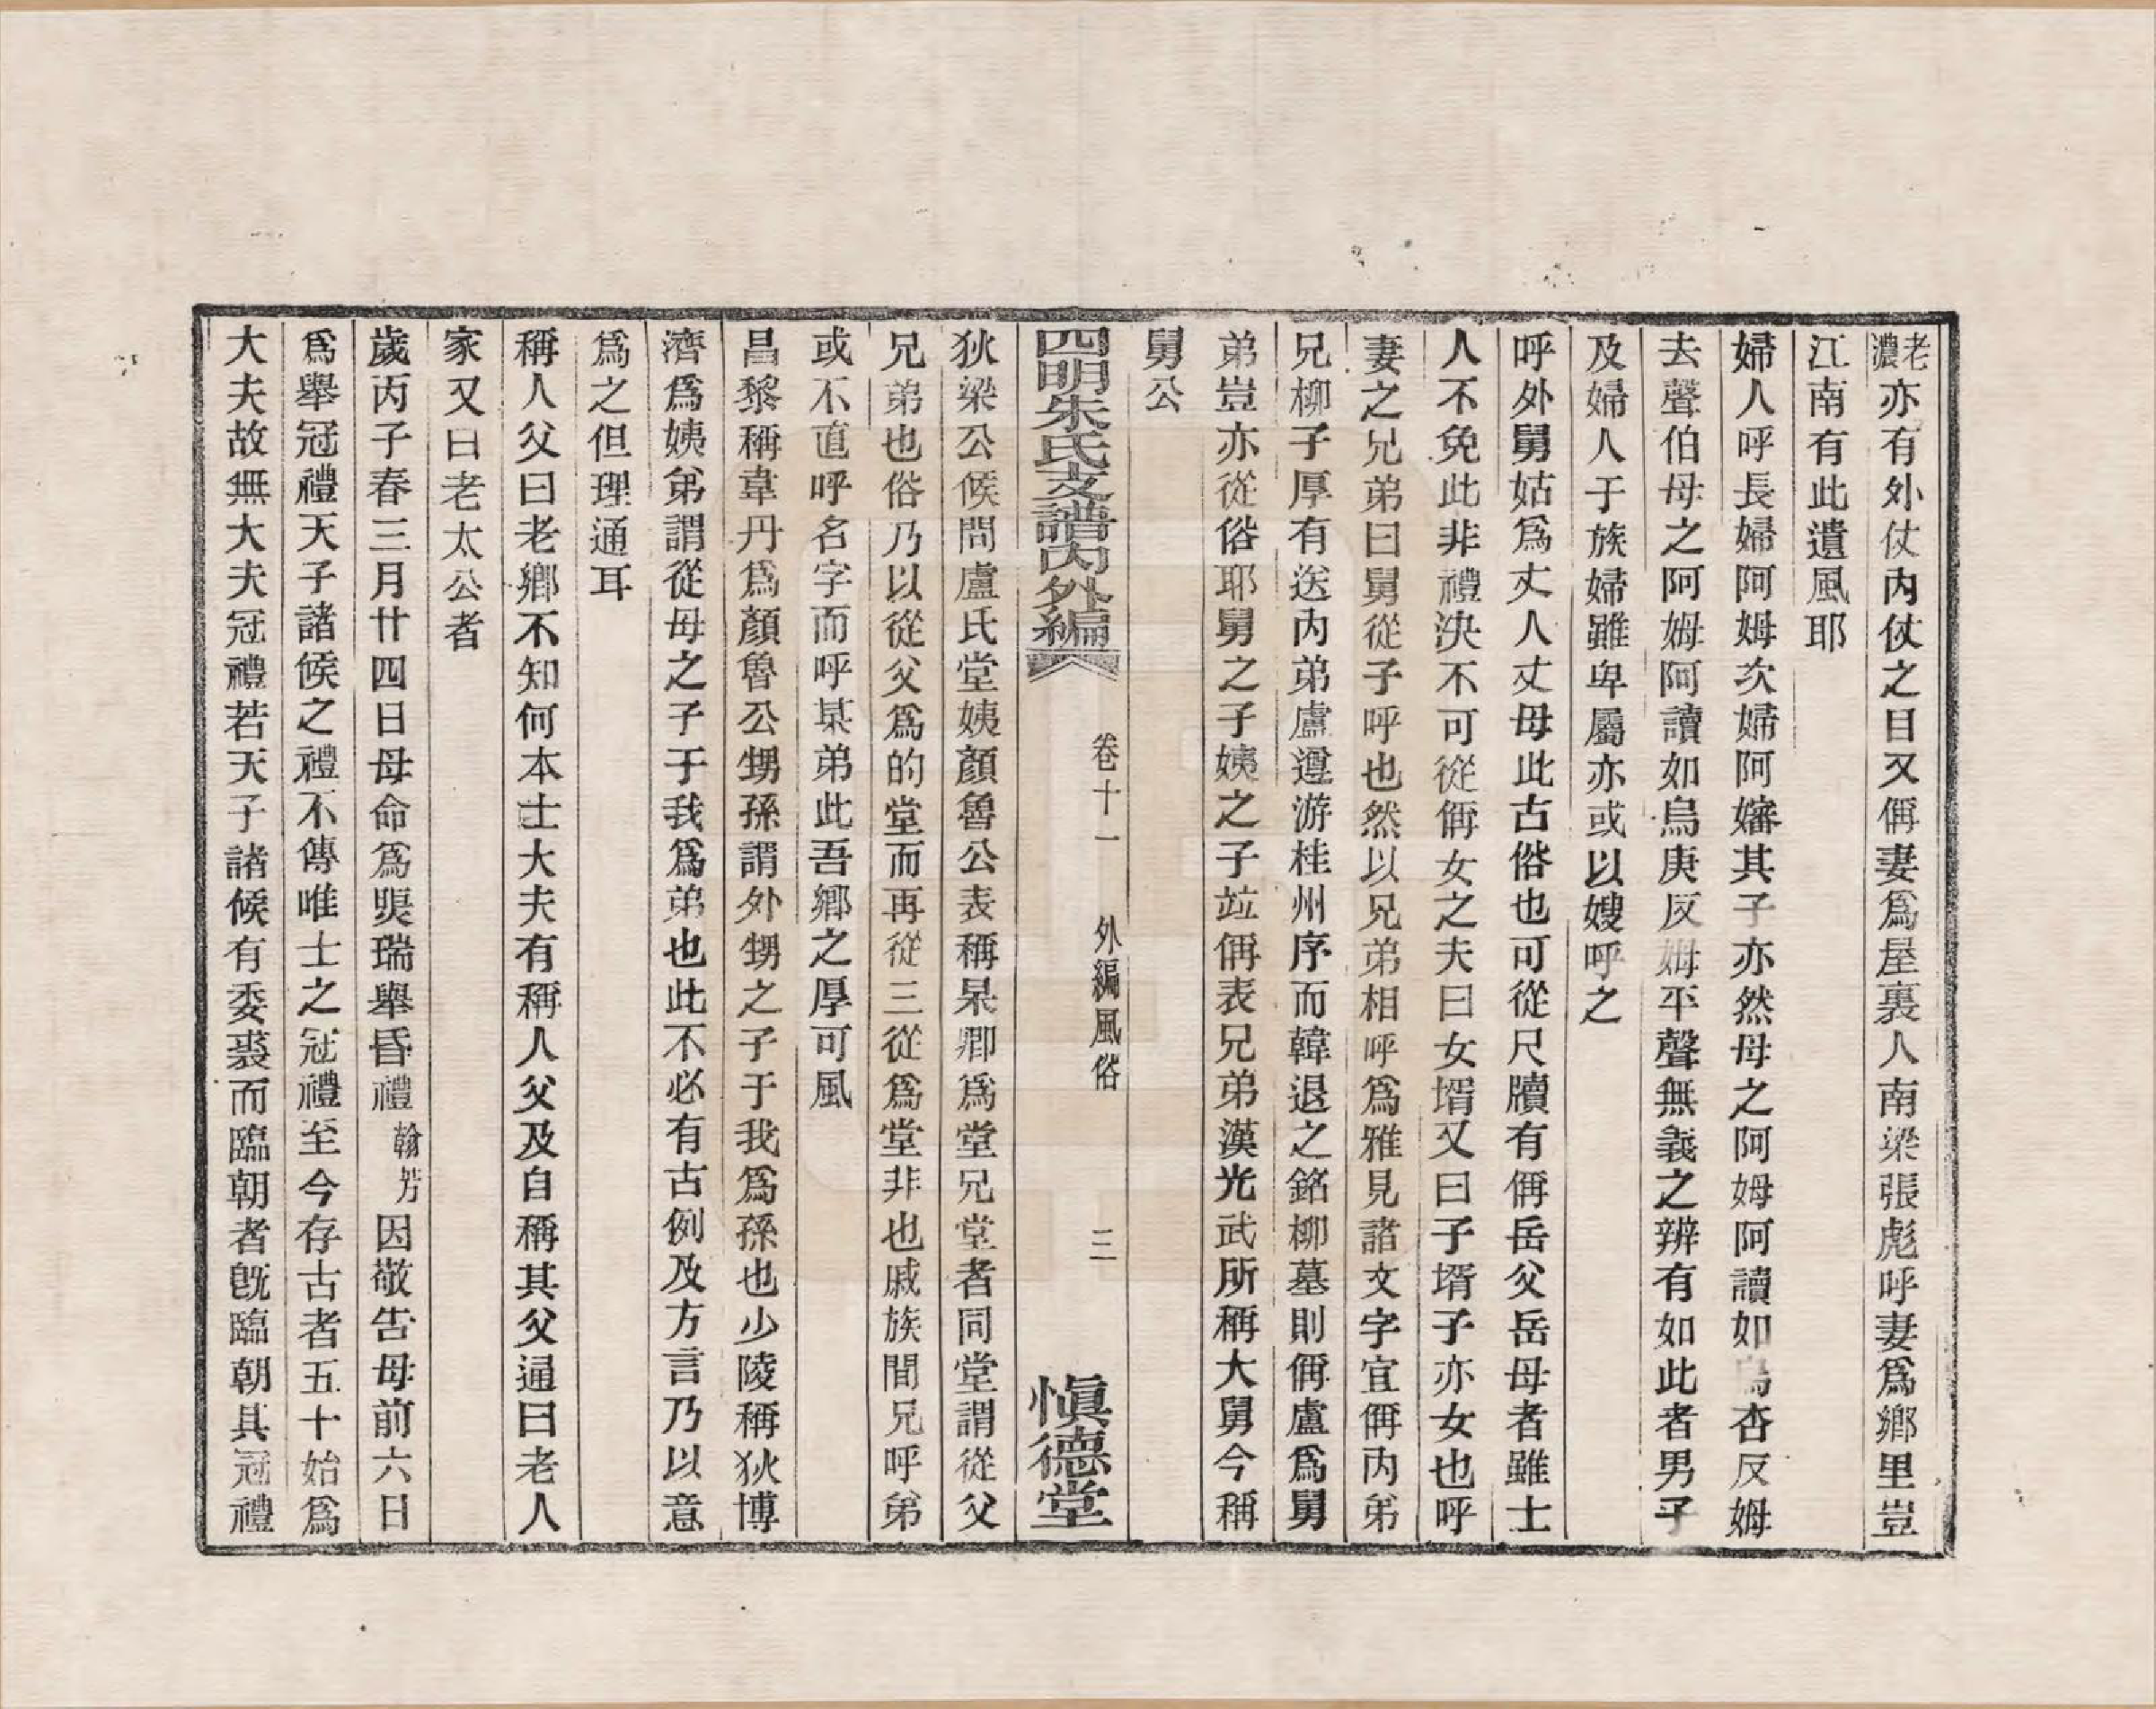 老濃亦有外仗内仗之目又偁妻爲屋裏人南梁張彪呼妻爲鄉里豈
江南有此遺風耶
婦人呼長婦阿姆姆次婦阿嬸其子亦然母之阿姆阿讀如烏杏反姆
去聲伯母之阿姆阿讀如烏庚反姆平聲無義之辨有如此者男子
及婦人于族婦雖卑屬亦或以嫂呼之
呼外舅姑爲丈人丈母此古俗也可從尺牘有偁岳父岳母者雖士
人不免此非禮決不可從偁女之夫曰女壻又曰子壻子亦女也呼
妻之兄弟曰舅從子呼也然以兄弟相呼爲雅見諸文字宜偁内弟
兄柳子厚有送内弟盧遵游桂州序而韓退之銘柳墓則偁盧爲舅
弟豈亦從俗耶舅之子姨之子竝偁表兄弟漢光武所稱大舅今稱
舅公
四明朱氏支譜内外編 卷十一 外編風俗 三 愼德堂
狄梁公候問盧氏堂姨顏魯公表稱杲卿爲堂兄堂者同堂謂從父
兄弟也俗乃以從父爲的堂而再從三從爲堂非也戚族間兄呼弟
或不直呼名字而呼某弟此吾鄉之厚可風
昌黎稱韋丹爲顏魯公甥孫謂外甥之子于我爲孫也少陵稱狄博
濟爲姨弟謂從母之子于我爲弟也此不必有古例及方言乃以意
爲之但理通耳
稱人父曰老鄉不知何本士大夫有稱人父及自稱其父通曰老人
家又曰老太公者
歲丙子春三月廿四日母命爲褧瑞舉昏禮翰芳因敬告母前六日
爲舉冠禮天子諸候之禮不傳唯士之冠禮至今存古者五十始爲
大夫故無大夫冠禮若天子諸候有委裘而臨朝者旣臨朝具冠禮